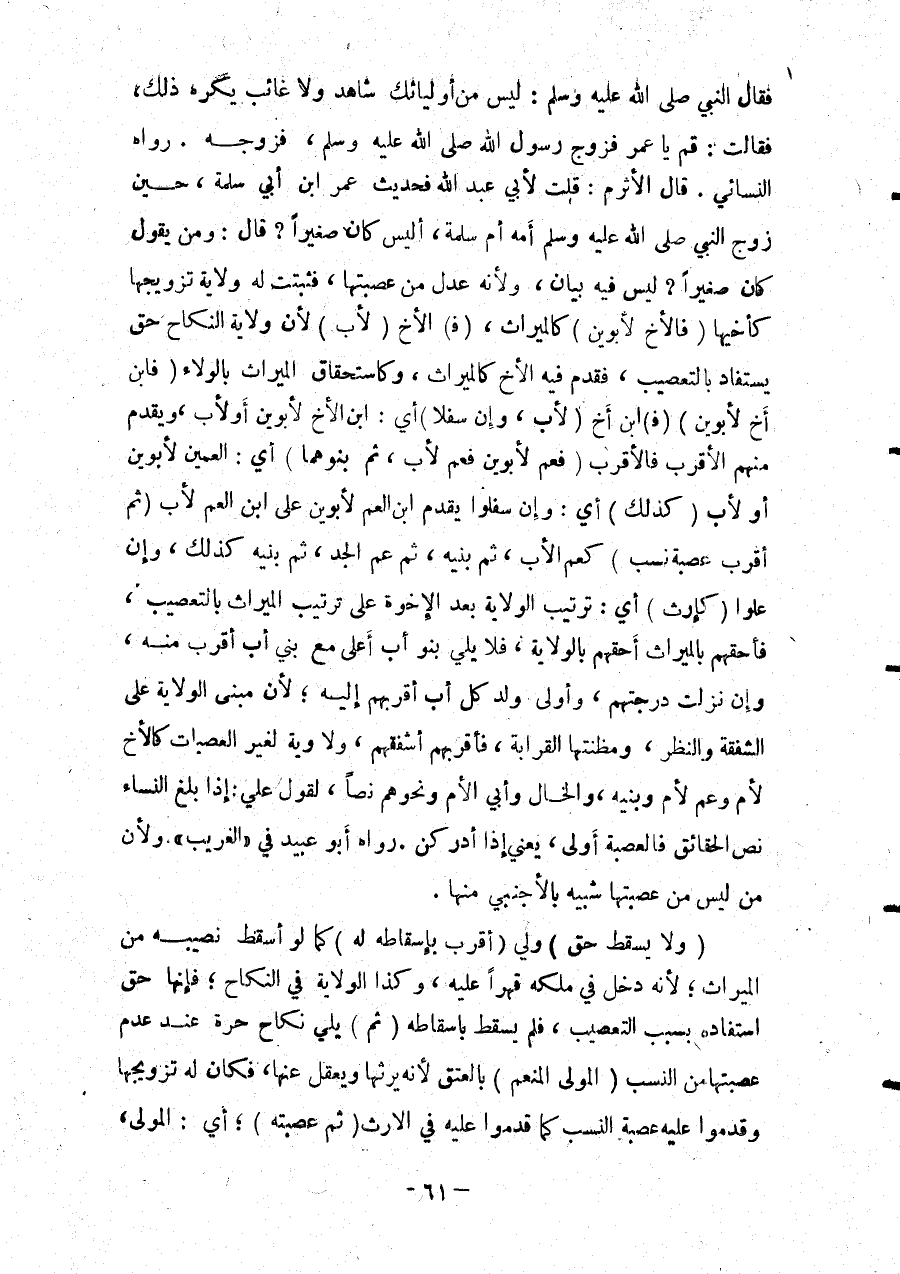 فقال النبي صلى الله عليه وسلم : ليس من أوليائك شاهد ولا غائب يكره ذلك،
فقالت : قم يا عمر فزوج رسول الله صلى الله عليه وسلم ، فزوجه . رواه
النسائي . قال الأثرم : قلت لأبي عبد الله فحديث عمر ابن أبي سلمة ، حين
زوج النبي صلى الله عليه وسلم أمه أم سلمة ، أليس كان صغيراً ? قال : ومن يقول
كان صغيراً ? ليس فيه بيان ، ولأنه عدل من عصبتها ، فثبتت له ولاية تزويجها
كأخيها ( فالأخ لأبوين ) كالميراث ، ( فـ ) الأخ ( لأب ) لأن ولاية النكاح حق
يستفاد بالتعصيب ، فقدم فيه الأخ كالميراث ، وكاستحقاق الميراث بالولاء ( فابن
أخ لأبوين ) ( فـ ) ابن أخ ( لأب ، وإن سفلا ) أي : ابن الأخ لأبوين أو لأب ، ويقدم
منهم الأقرب فالأقرب ( فعم لأبوين فعم لأب ، ثم بنوهما ) أي : العمين لأبوين
أو لأب ( كذلك ) أي : وإن سفلوا يقدم ابن العم لأبوين على ابن العم لأب ( ثم
أقرب عصبة نسب ) كعم الأب ، ثم بنيه ، ثم عم الجد ، ثم بنيه كذلك ، وإن
علوا ( كإرث ) أي : ترتيب الولاية بعد الإخوة على ترتيب الميراث بالتعصيب ،
فأحقهم بالميراث أحقهم بالولاية ، فلا يلي بنو أب أعلى مع بني أب أقرب منه ،
وإن نزلت درجتهم ، وأولى ولد كل أب أقربهم إليه ؛ لأن مبنى الولاية على
الشفقة والنظر ، ومظنتها القرابة ، فأقربهم أشفقهم ، ولا وية لغير العصبات كالأخ
لأم وعم لأم وبنيه ، والخال وأبي الأم ونحوهم نصاً ، لقول علي : إذا بلغ النساء
نص الحقائق فالعصبة أولى ، يعني إذا أدركن . رواه أبو عبيد في «الغريب» . ولأن
من ليس من عصبتها شبيه بالأجنبي منها .
( ولا يسقط حق ) ولي ( أقرب بإسقاطه له ) كما لو أسقط نصيبه من
الميراث ؛ لأنه دخل في ملكه قهراً عليه ، وكذا الولاية في النكاح ؛ فإنها حق
استفاده بسبب التعصيب ، فلم يسقط باسقاطه ( ثم ) يلي نكاح حرة عند عدم
عصبتها من النسب ( المولى المنعم ) بالعتق لأنه يرثها ويعقل عنها ، فكان له تزويجها
وقدموا عليه عصبة النسب كما قدموا عليه في الارث ( ثم عصبته ) ؛ أي : المولى ،
— ٦١ -